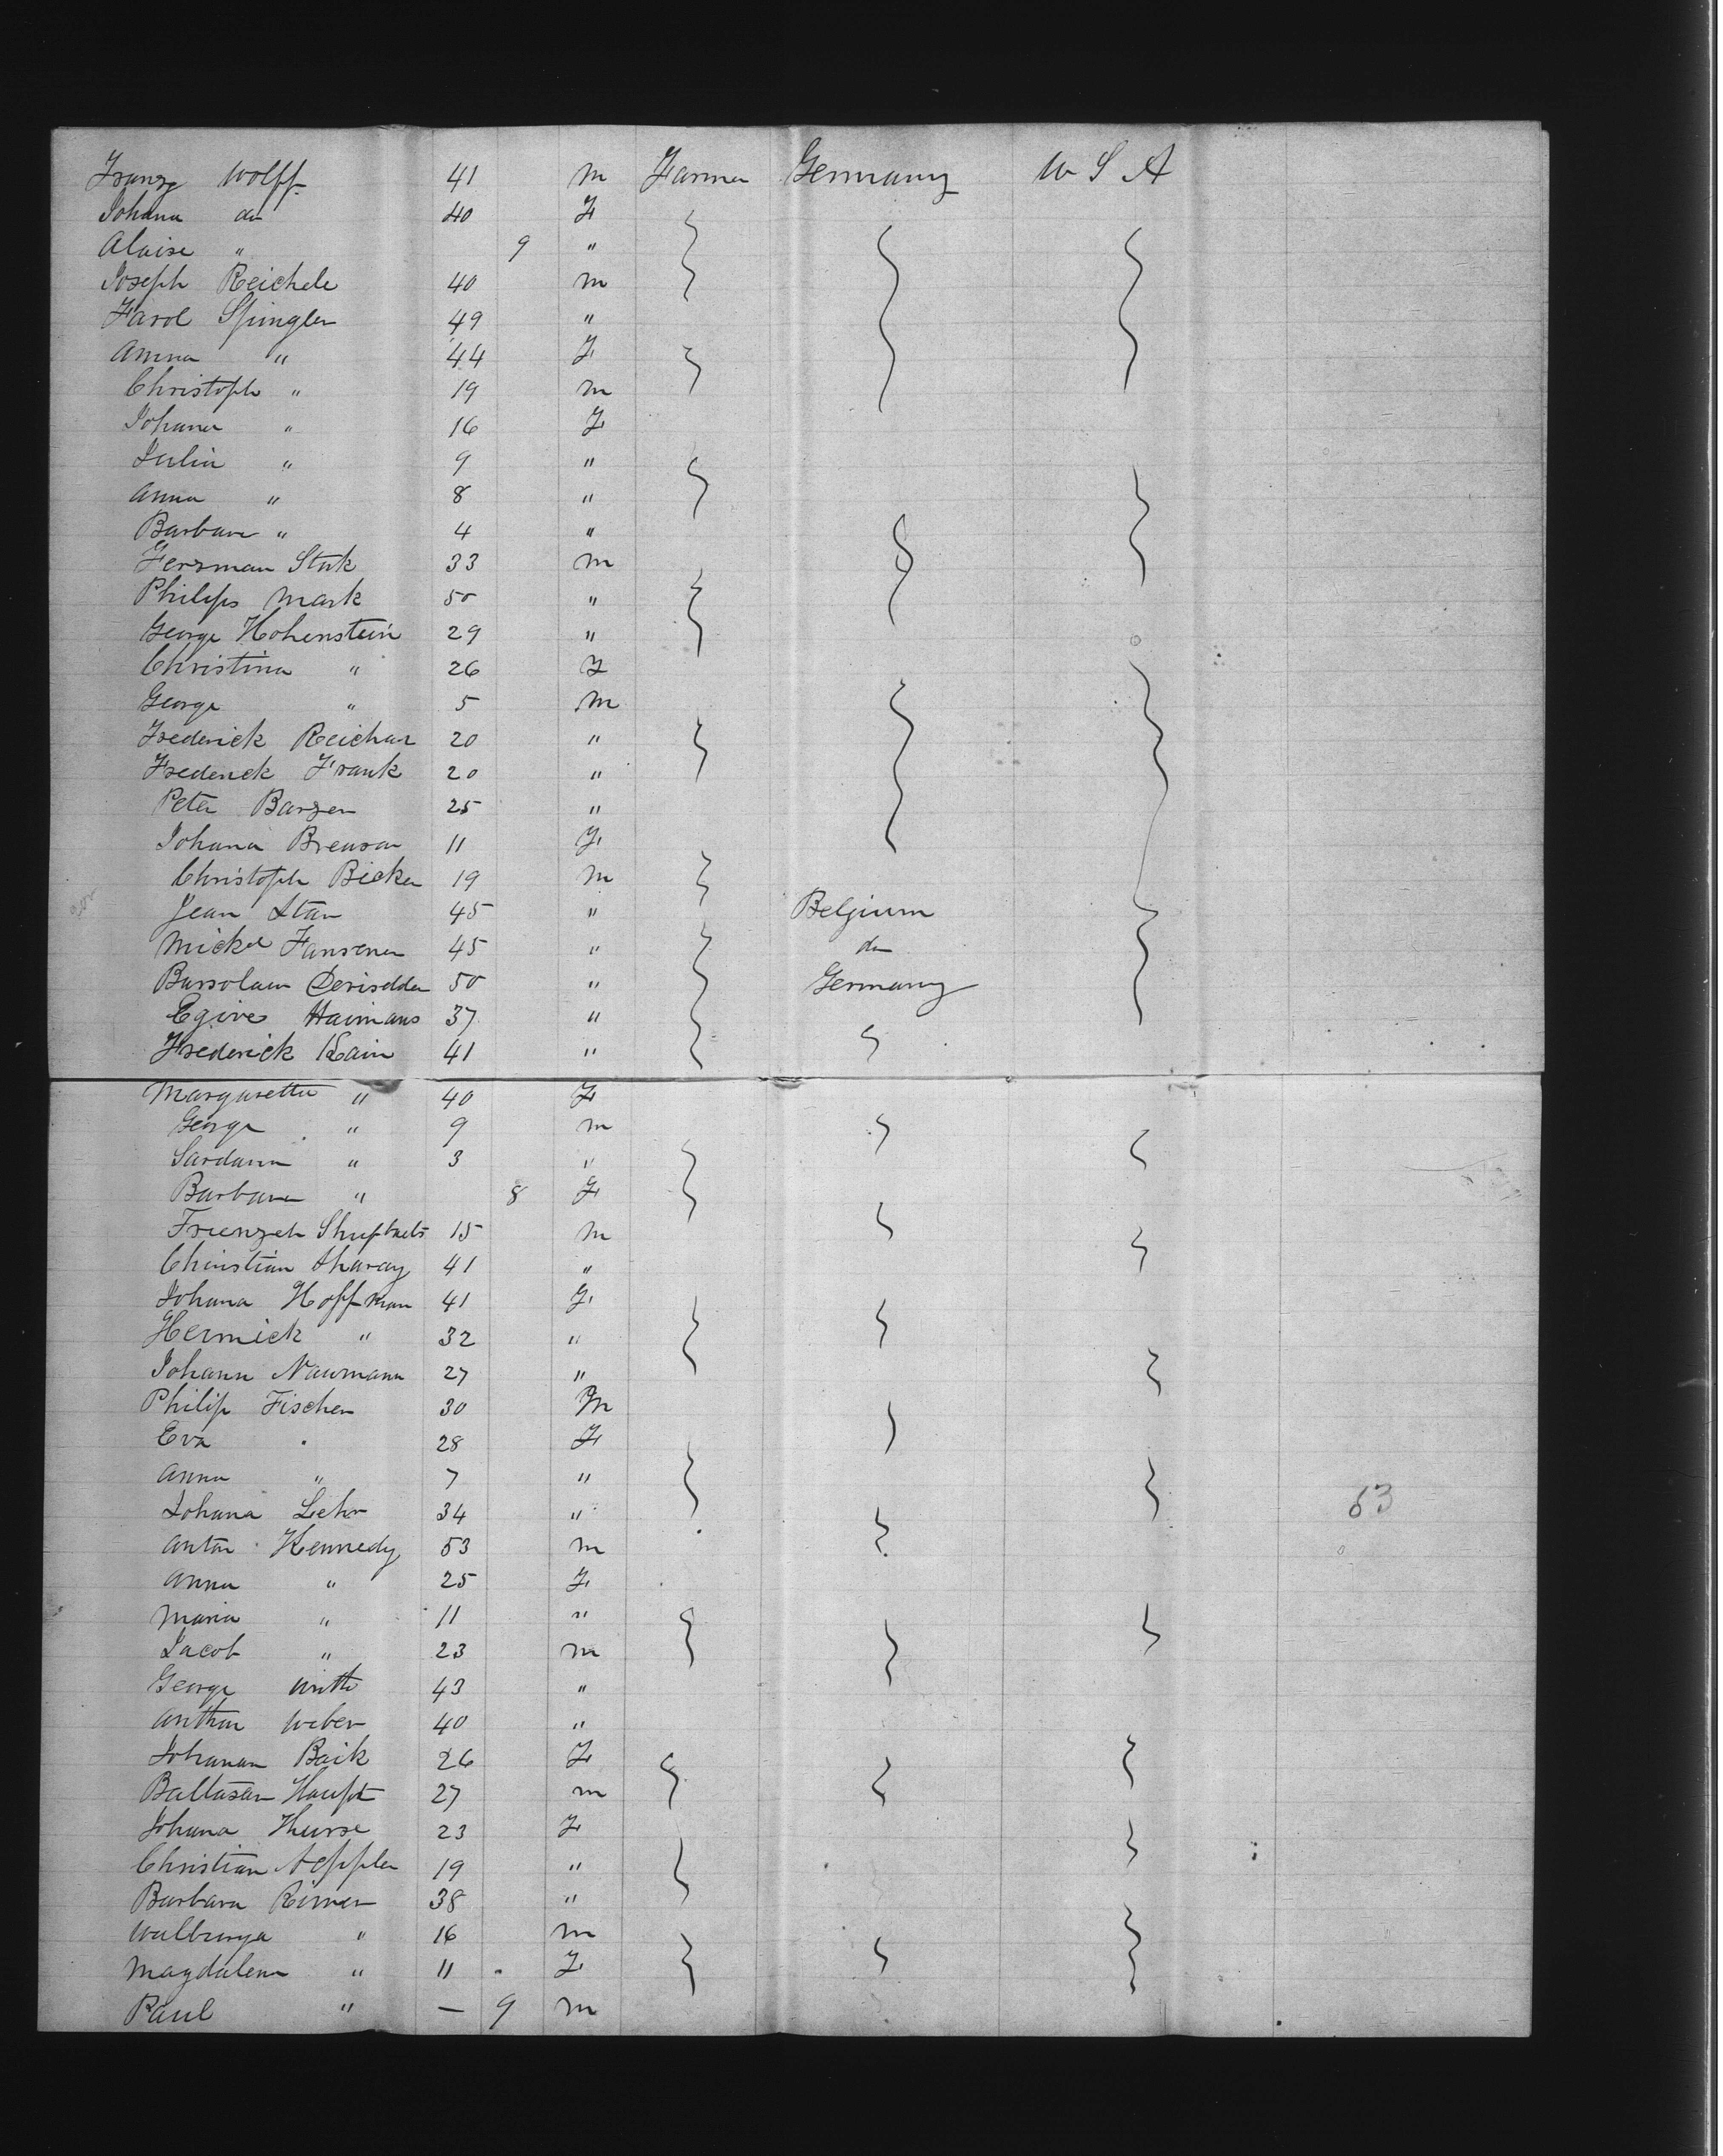 Franz Wolff 41 m Farmer Germany U S A
Johana do 40 F
Aloise " 9 "
Joseph Reichele 40 m
Karol Spingler 49 "
Anna " 44 F
Christoph " 19 m
Johana " 16 F
Julia " 9 "
Anna " 8 "
Barbara " 4 "
Herman Stok 33 m
Philips Mark 50 "
George Hohenstein 29 "
Christina " 26 F
George " 5 m
Frederick Reichar 20 "
Frederick Frank 20 "
Peter Barzen 25 "
Johana 11 F
Christoph Bicker 19 m
Jean 45 " Belgium
Mickel Jansenen 45 " do
50 " Germany
Haimans 37 "
Frederick Kain 41 "
Margaretta " 40 F
George " 9 m
" 3 "
Barbara " 8 F
15 m
Christian 41 "
Johana Hoffman 41 F
Hermick " 32 "
Johann Naumann 27 "
Philip Fischer 30 m
Eva 28 F
Anna " 7 "
Johana Lehr 34 " 63
Anton Kennedy 53 m
Anna " 25 F
Maria " 11 "
Jacob " 23 m
George 43 "
Anthon Weber 40 "
Johanan Baik 26 F
Baltasar Haupt 27 m
Johana 23 F
Christian Aeppler 19 "
Barbara Rimer 38 "
Walburga " 16 m
Magdalena " 11 F
Paul " — 9 m